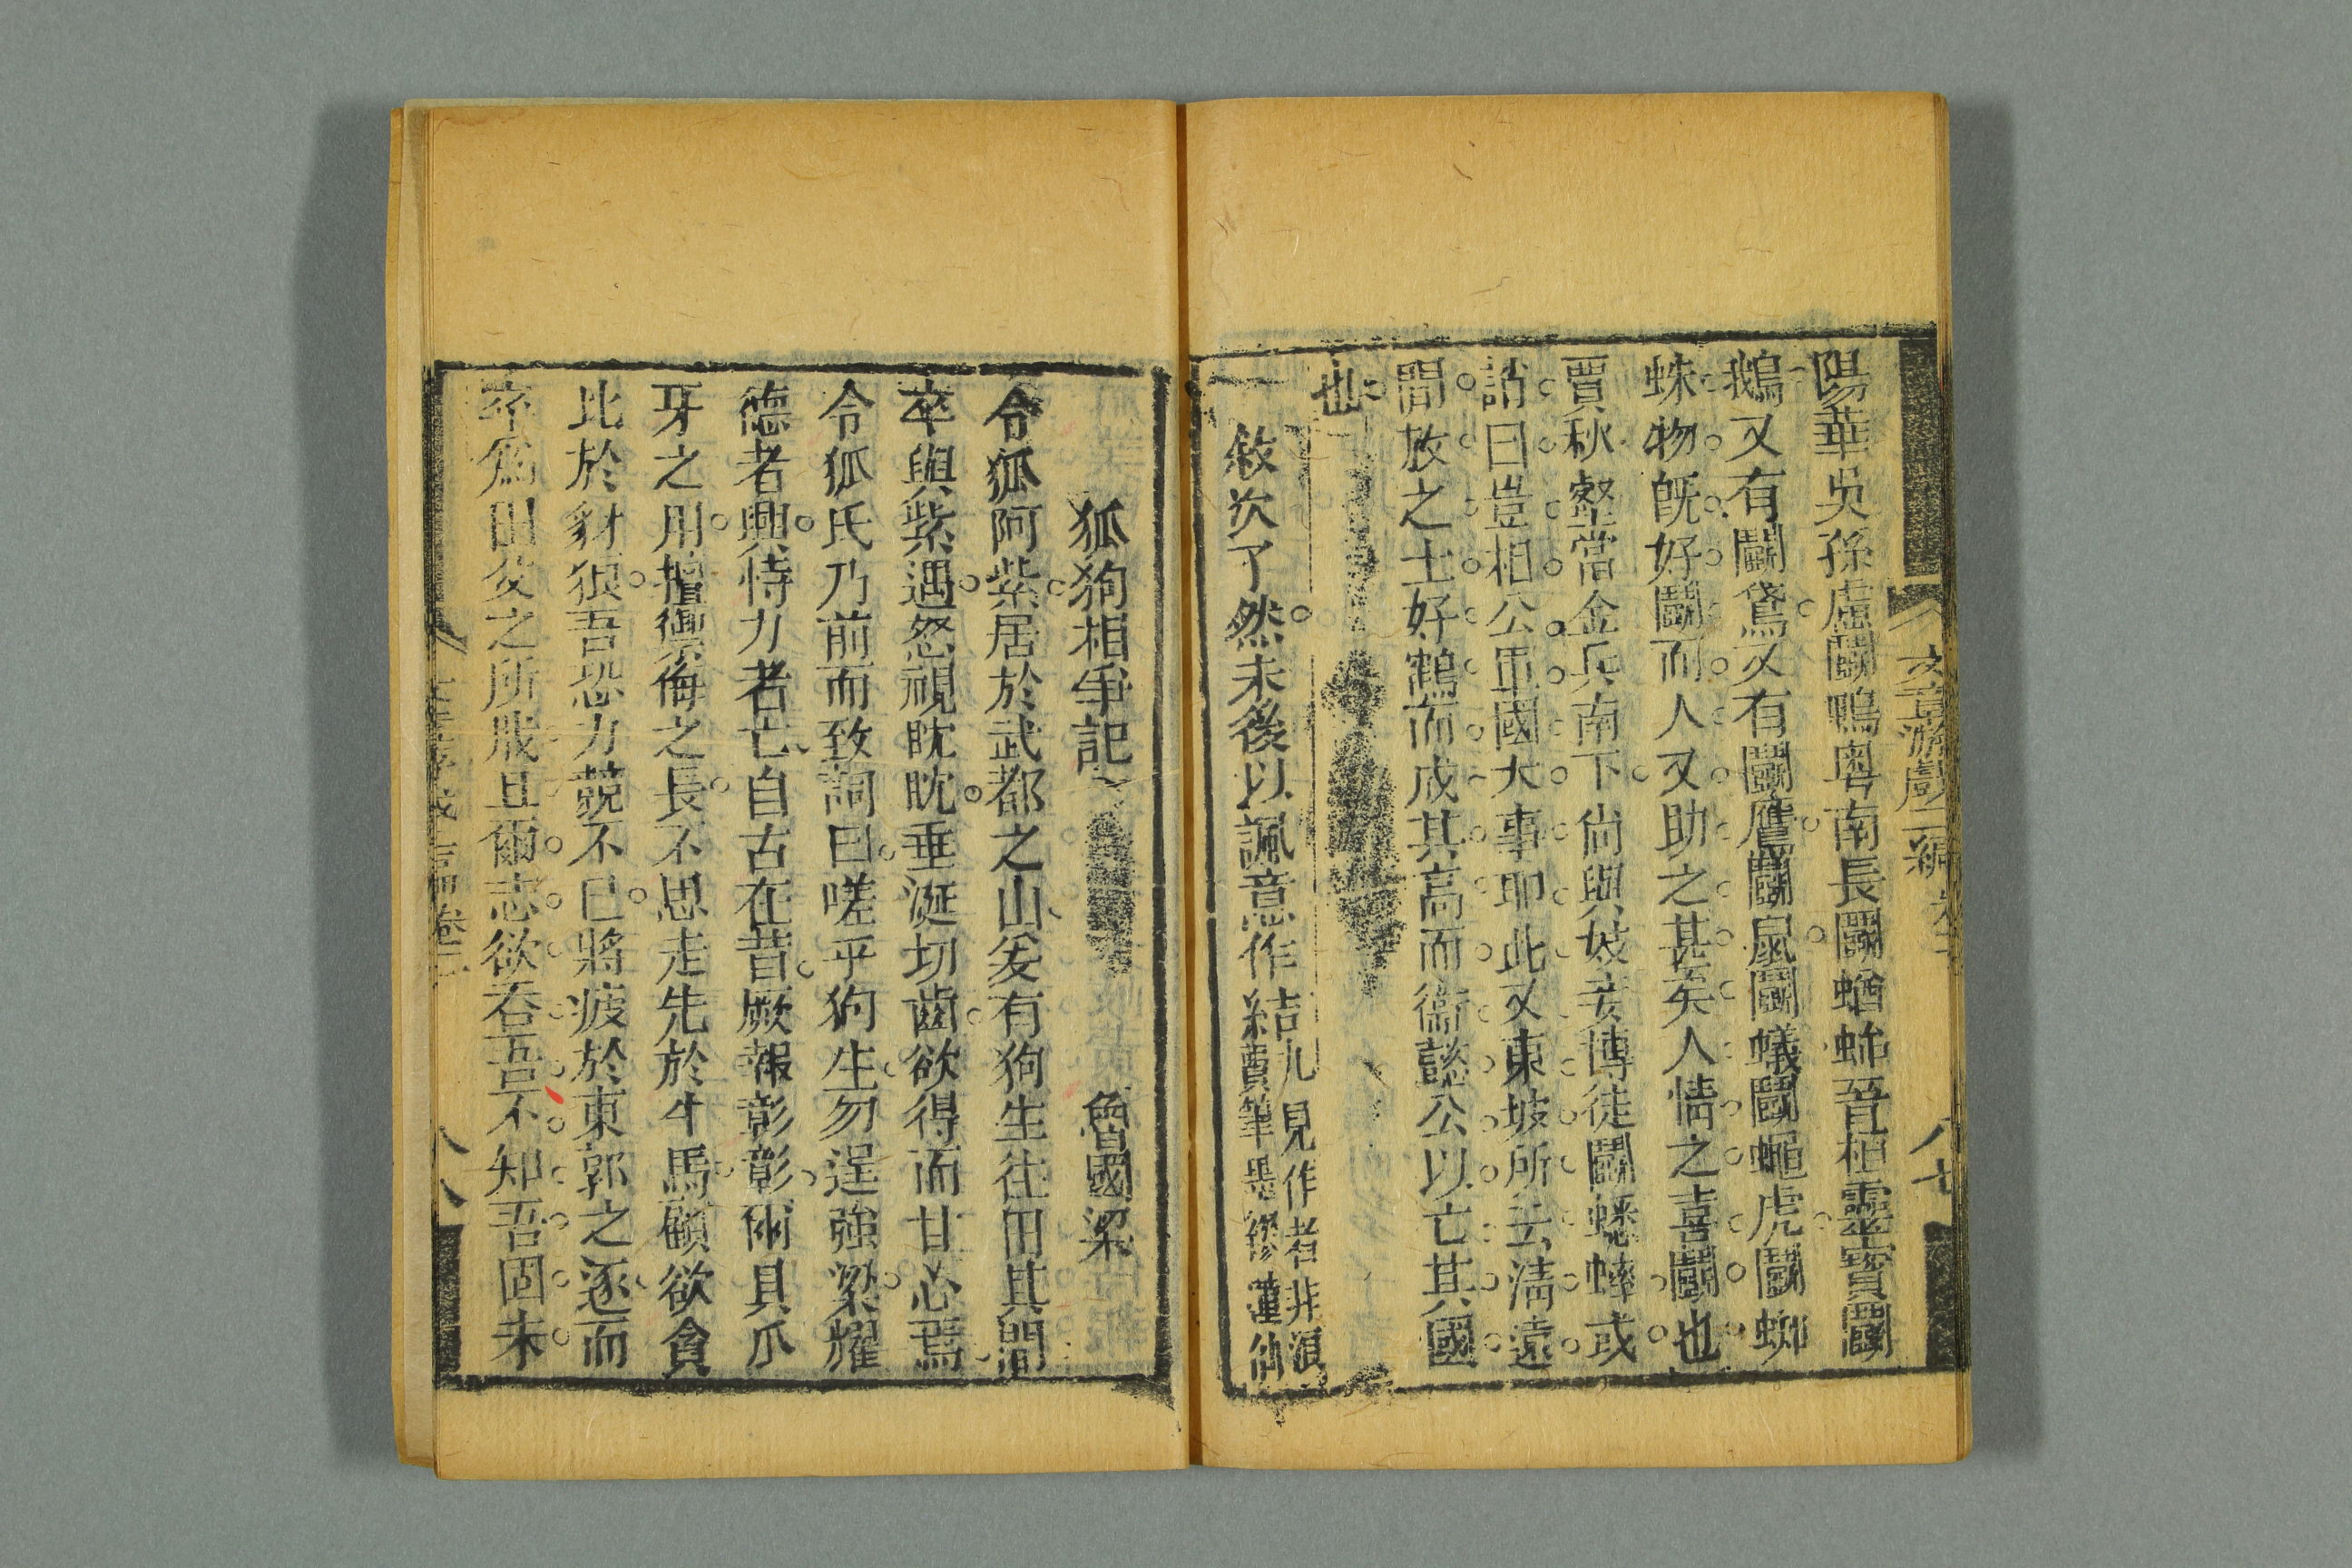 文章游戲二編 卷二 八七
陽華吳孫慮鬭鴨粵南長鬭蝤蛑晉桓靈寶鬭
鵝又有鬭鴛又有鬭鷹鬭鼠鬭蟻鬭蠅虎鬭蜘
蛛物旣好鬭而人又助之甚矣人情之喜鬭也
賈秋壑當金兵南下尙與妓妾博徒鬭蟋蟀或
誚曰豈相公軍國大事耶此又東坡所云淸遠
閒放之士好鶴而成其高而衞懿公以亡其國
也
敘次了然末後以諷意作結
九見作者非浪
費筆墨 繆蓮仙
狐狗相爭記 魯國梁
令狐阿紫居於武都之山矣有狗生往田其間
卒與紫遇怒視眈眈垂涎切齒欲得而甘心焉
令狐氏乃前而致詞曰嗟乎狗生勿逞強梁耀
德者興恃力者亡自古在昔厥報彰彰爾具爪
牙之用擅禦侮之長不思走先於牛馬顧欲貪
比於豺狼吾恐力競不已將疲於東郭之逐而
卒爲田父之所戕且爾志欲吞吾不知吾固未
卷二 八八